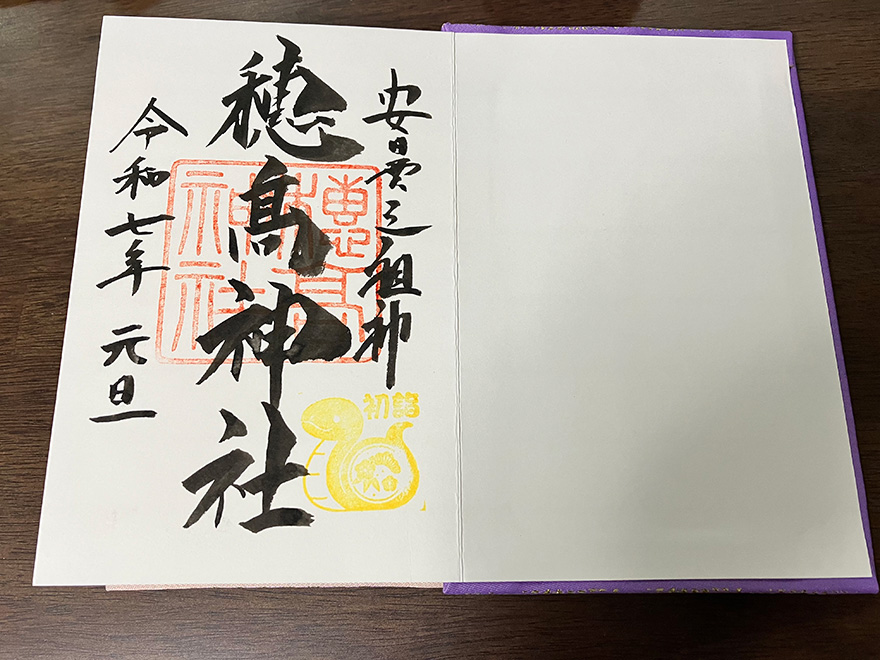 安曇道祖神
穂髙神社
穗高
神社
初詣
令和七年 元旦